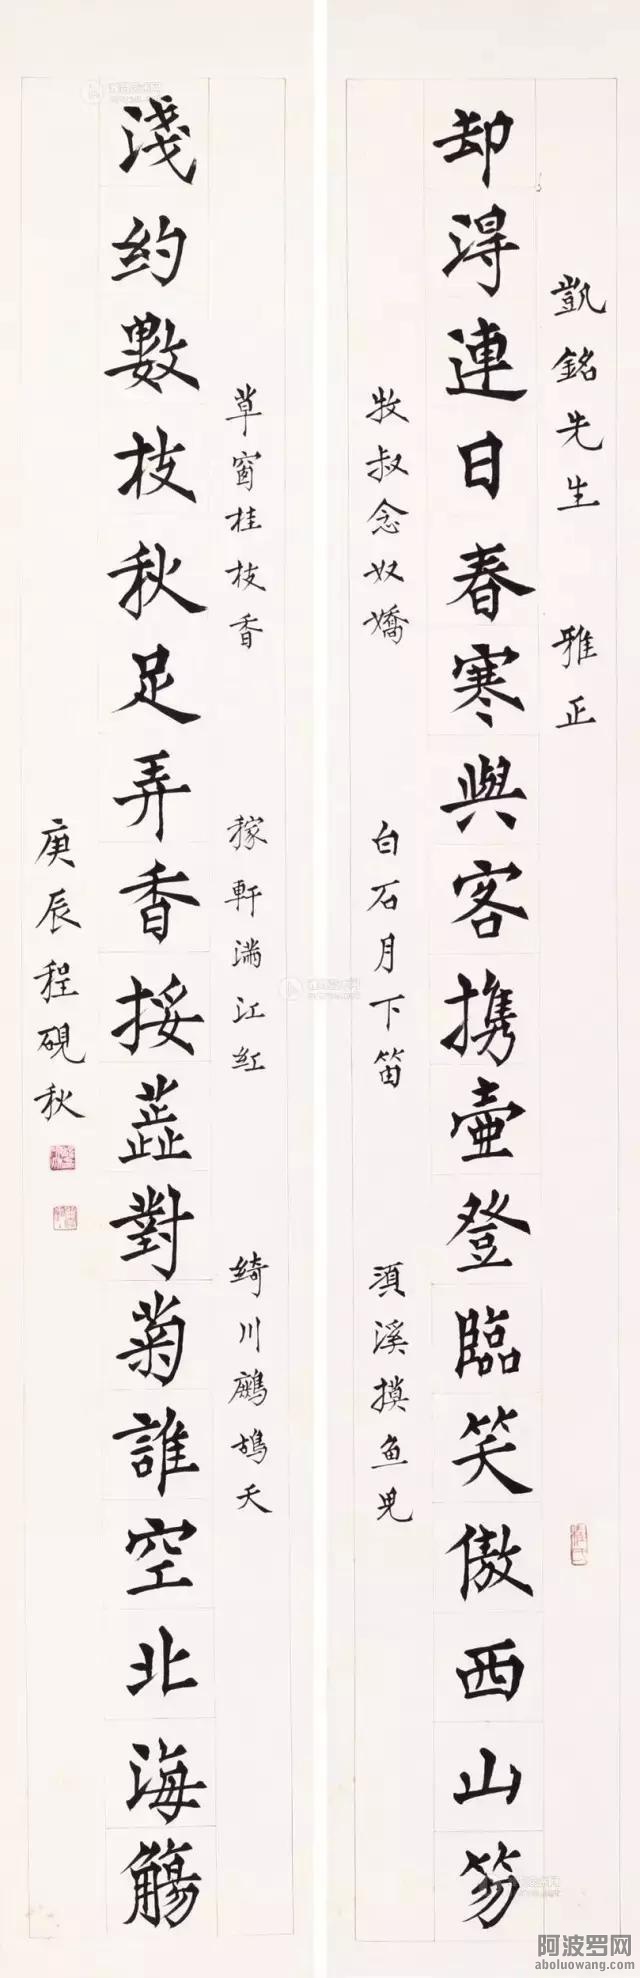 凱銘先生 雅正
却淂連日春寒與客携壷登臨笑傲西山笏
牧叔念奴嬌 白石月下笛 須溪摸魚兒
草窗桂枝香 稼軒滿江紅 綺川鷓鴣天
淺約數枝秋足弄香挼蕋對菊誰空北海觴
庚辰程硯秋
阿波罗网
aboluowang.com